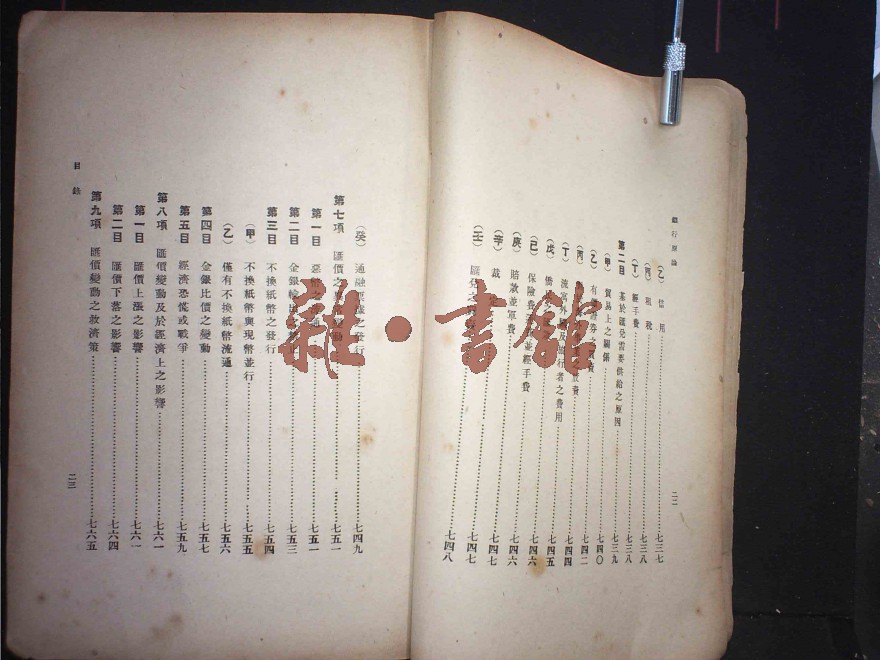 銀行原論
二二
(乙) 信用……七三七
(丙) 租稅……七三八
(丁) 經手費……七三八
第二目 基於匯兌需要供給之原因……七三九
(甲) 貿易上之關係……七四〇
(乙) 有價證券之買賣……七四二
(丙)
放資……七四四
(丁) 流寓外國及旅行者之費用……七四四
(戊) 僑……七四五
(己) 保險費
並經手費……七四六
(庚) 賠款並軍費……七四六
(辛) 裁……七四七
(壬) 匯兌之……七四七
七四八
目錄
二三
(癸) 通融匯票之發行……七四九
第七項 匯價之變動……七五一
第一目 惡幣之流通……七五一
第二目 金銀輸出……七五三
第三目 不換紙幣之發行……七五四
(甲) 不換紙幣與現幣並行……七五五
(乙) 僅有不換紙幣流通……七五六
第四目 金銀比價之變動……七五七
第五目 經濟恐慌或戰爭……七五九
第八項 匯價變動及於經濟上之影響……七六一
第一目 匯價上漲之影響……七六一
第二目 匯價下落之影響……七六四
第九項 匯價變動之救濟策……七六五
雜·書館